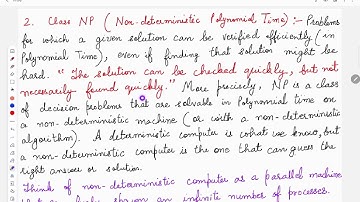 2. Class NP (Non-deterministic Polynomial Time) :- Problems
for which a given solution can be verified efficiently (in
Polynomial Time), even if finding that solution might be
hard. "The solution can be checked quickly, but not
necessarily found quickly." More precisely, NP is a class
of decision problems that are solvable in Polynomial time on
a non-deterministic machine (or with a non-deterministic
algorithm). A deterministic computer is what we know, but
a non-deterministic computer is the one that can guess the
right answer or solution.
Think of non-deterministic computer as a parallel machine
an infinite number of processes.